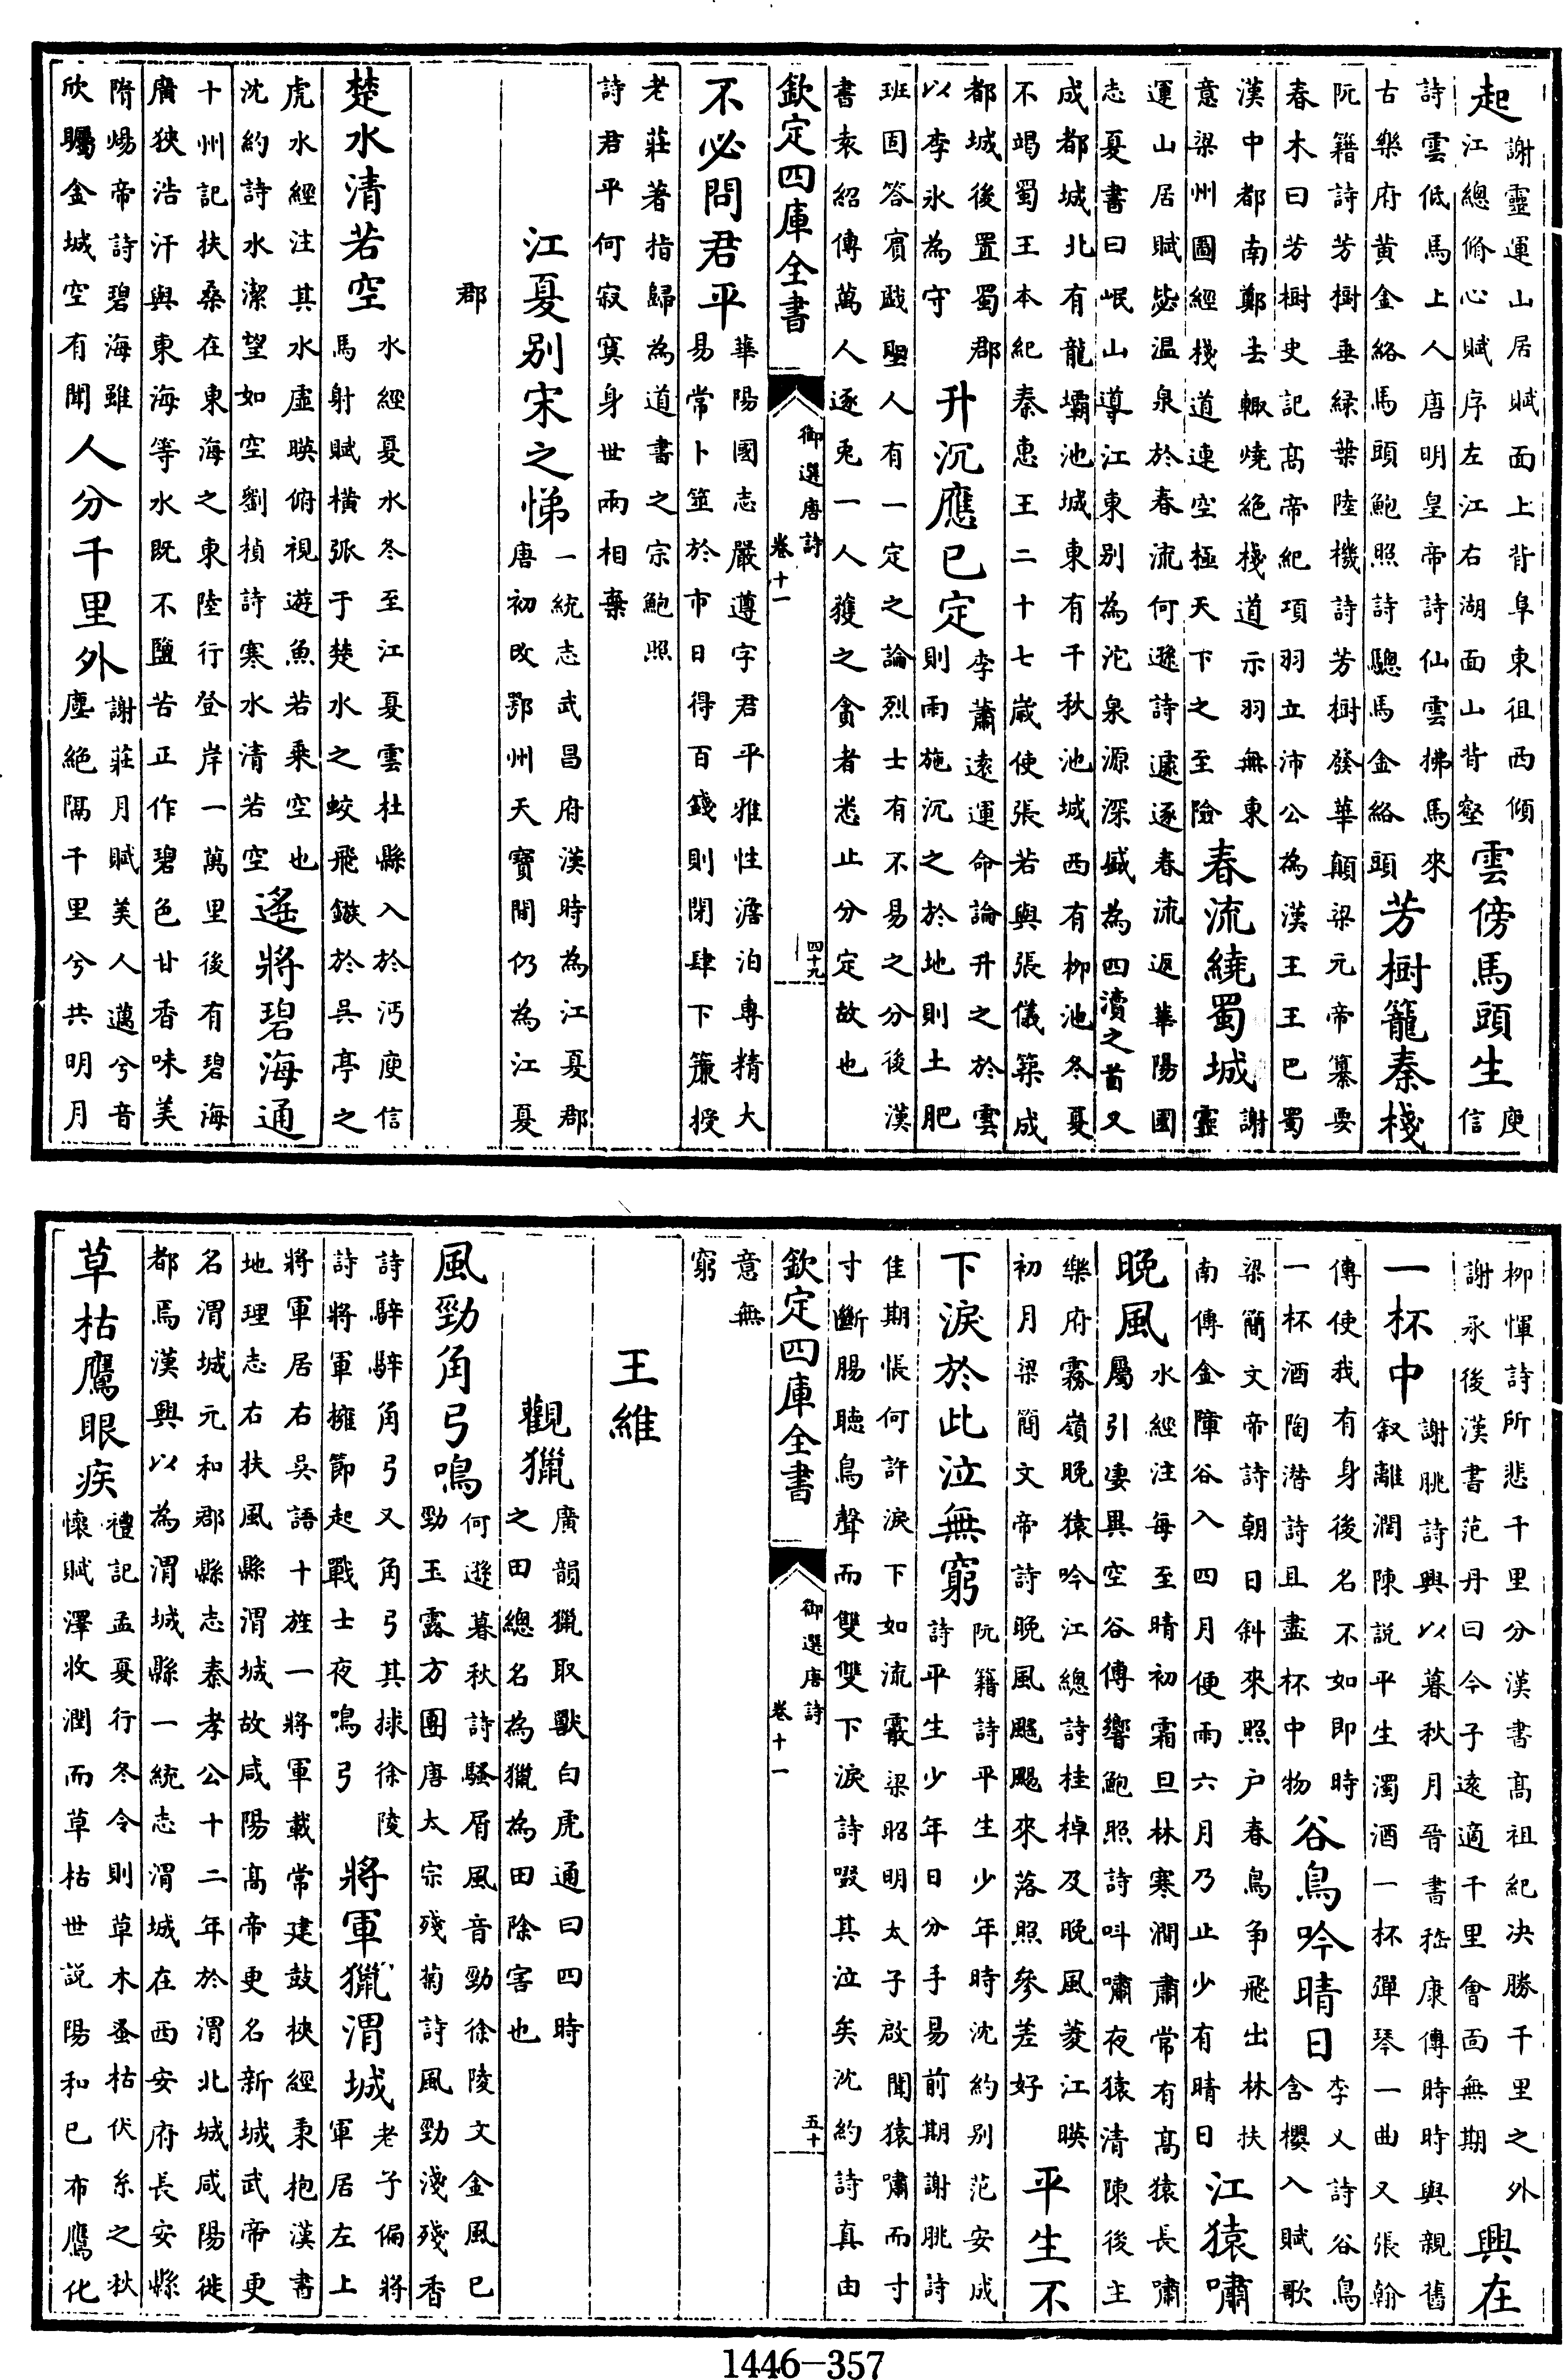 起謝靈運山居賦面上背阜東徂西傾江總脩心賦序左江右湖面山背壑雲傍馬頭生庾信
詩雲低馬上人唐明皇帝詩仙雲拂馬來古樂府黄金絡馬頭鮑照詩驄馬金絡頭芳樹籠秦棧
阮籍詩芳樹垂緑葉陸機詩芳樹發華顛梁元帝纂要春木曰芳樹史記高帝紀項羽立沛公為漢王王巴蜀
漢中都南鄭去輙燒絕棧道示羽無東意梁州圖經棧道連空極天下之至險春流繞蜀城謝靈
運山居賦毖温泉於春流何遜詩遽逐春流返華陽國志夏書曰岷山導江東別為沱泉源深盛為四瀆之首又
成都城北有龍壩池城東有千秋池城西有柳池冬夏不竭蜀王本紀秦惠王二十七歲使張若與張儀築成
都城後置蜀郡以李氷為守升沉應已定李蕭遠運命論升之於雲則雨施沉之於地則土肥
班固答賓戲聖人有一定之論烈士有不易之分後漢書袁紹傳萬人逐兎一人獲之貪者悉止分定故也
欽定四庫全書
御選唐詩
卷十一
四十九
不必問君平華陽國志嚴遵字君平雅性澹泊專精大易常卜筮於市日得百錢則閉肆下簾授
老莊著指歸為道書之宗鮑照詩君平何寂寞身世兩相棄
江夏別宋之悌一統志武昌府漢時為江夏郡唐初改鄂州天寶間仍為江夏
郡
楚水清若空水經夏水冬至江夏雲杜縣入於沔庾信馬射賦橫弧于楚水之蛟飛鏃於吳亭之
虎水經注其水虛暎俯視遊魚若乘空也沈約詩水潔望如空劉楨詩寒水清若空遙將碧海通
十州記扶桑在東海之東陸行登岸一萬里後有碧海廣狹浩汗與東海等水既不鹽苦正作碧色甘香味美
隋煬帝詩碧海雖欣矚金城空有聞人分千里外謝莊月賦美人邁兮音塵絕隔千里兮共明月
柳惲詩所悲千里分漢書高祖紀決勝千里之外謝承後漢書范丹曰今子遠適千里會面無期興在
一杯中謝朓詩興以暮秋月晉書嵇康傳時時與親舊叙離濶陳說平生濁酒一杯彈琴一曲又張翰
傳使我有身後名不如即時一杯酒陶潛詩且盡杯中物谷鳥吟晴日李乂詩谷鳥含櫻入賦歌
梁簡文帝詩朝日斜來照户春鳥争飛出林扶南傳金陳谷入四月便雨六月乃止少有晴日江猿嘯
晚風水經注每至晴初霜旦林寒澗肅常有高猿長嘯屬引凄異空谷傳響鮑照詩呌嘯夜猿清陳後主
樂府霧嶺晚猿吟江總詩桂棹及晚風菱江暎初月梁簡文帝詩晚風颸颸來落照參差好平生不
下淚於此泣無窮阮籍詩平生少年時沈約別范安成詩平生少年日分手易前期謝朓詩
佳期悵何許淚下如流霰梁昭明太子啟聞猿嘯而寸寸斷腸聴鳥聲而雙雙下淚詩啜其泣矣沈約詩真由
欽定四庫全書
御選唐詩
卷十一
五十
意無窮
王維
觀獵廣韻獵取獸白虎通曰四時之田總名為獵為田除害也
風勁角弓鳴何遜暮秋詩騷屑風音勁徐陵文金風已勁玉露方團唐太宗殘菊詩風勁淺殘香
詩騂騂角弓又角弓其捄徐陵詩將軍擁節起戰士夜鳴弓將軍獵渭城老子偏將軍居左上
將軍居右吳語十旌一將軍載常建鼓挾經秉抱漢書地理志右扶風縣渭城故咸陽高帝更名新城武帝更
名渭城元和郡縣志秦孝公十二年於渭北城咸陽徙都焉漢興以為渭城縣一統志渭城在西安府長安縣
草枯鷹眼疾禮記孟夏行冬令則草木蚤枯伏系之秋懷賦澤收潤而草枯世說陽和已布鷹化
1446-357